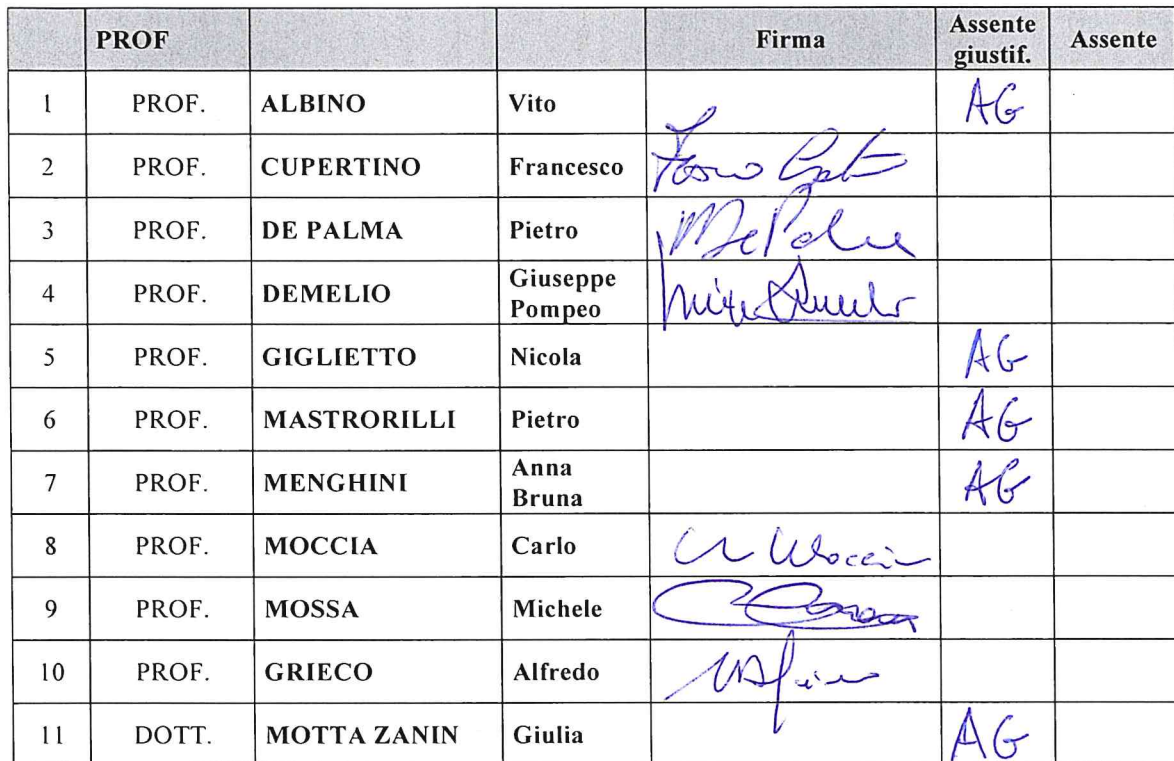 PROF Firma Assente giustif. Assente
1 PROF. ALBINO Vito AG
2 PROF. CUPERTINO Francesco
3 PROF. DE PALMA Pietro
4 PROF. DEMELIO Giuseppe Pompeo
5 PROF. GIGLIETTO Nicola AG
6 PROF. MASTRORILLI Pietro AG
7 PROF. MENGHINI Anna Bruna AG
8 PROF. MOCCIA Carlo
9 PROF. MOSSA Michele
10 PROF. GRIECO Alfredo
11 DOTT. MOTTA ZANIN Giulia AG